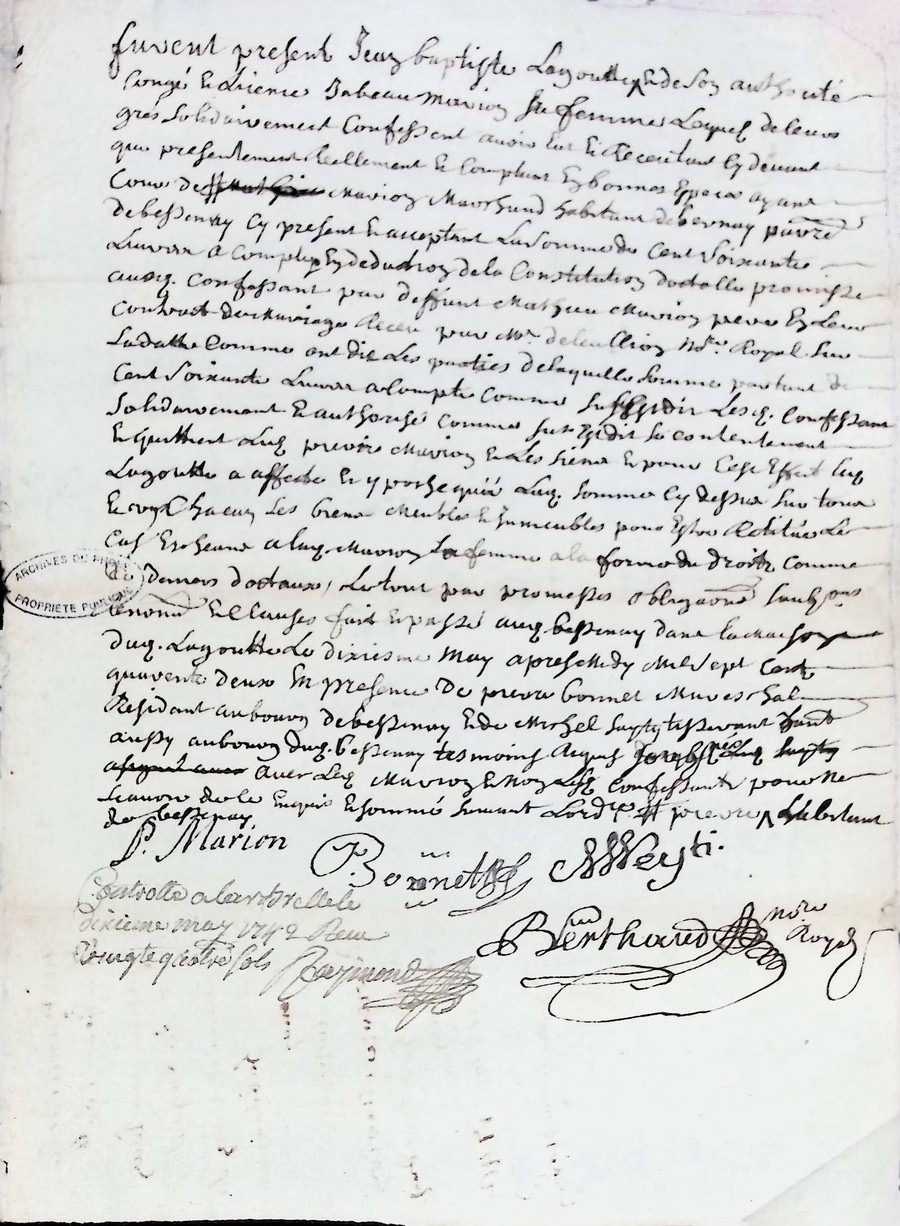 furent present Jean baptiste Lagoutte et de son authorité
Congé et Licence Isabeau Marion sa femme Lequels de leurs
gres Solidairement Confessent avoir Eut et Receu tant cy devant
que presentement Reellement et Comptant En bonnes Especes ayant
Cours de Marion Marchand habitant de bernay
de bessenay cy present et acceptant La somme de Cent Soixante
Livres a Compte Et deduction de la Constitution dotalle promisse
ausq. Confessant par deffunt Mathieu Marion pere En leur
Contrat de Mariage Receu par Mr. Nre. Royal Sur
La datte Comme ont dit Les parties de laquelle Somme partant de
Cent Soixante Livres a Compte Comme Sus Est dit Lesq. Confessant
Solidairement Et authorisé Comme Sus Est dit Se contentement
Et quittent Luq Marion Et Les siens Et pour Cest Effect Luq
Lagoutte a affecte Et Luq. Somme cy dessus Sur tous
Et Chacun Ses biens Meubles Et Immeubles pour Estre Restitués Le
Cas Echeant a luq Marion Sa femme a la forme du droit Comme
deniers dotaux, Le tout par promesses obligaons
renonce Et Clauses fait Et passé auq. bessenay dans la Maison
duq. Lagoutte Le dixiesme May apres Midy Mil Sept Cent
quarente deux En presence De pierre bonnet Mareschal
Residant au bourg de bessenay Et de Michel
aussy au bourg duq. bessenay tesmoins
avec Leq Marion Et Non Lesq confessants pour Ne
Scavoir de ce Enquis Et sommé Suivant Lordce
de bessenay
P. Marion
Bonnet
Berthaud nore Royal
Controllé a larbrelle le
dixieme may 1742 Receu
Vingt quatre sols Raymond
ARCHIVES DU RHONE
PROPRIETE PUBLIQUE